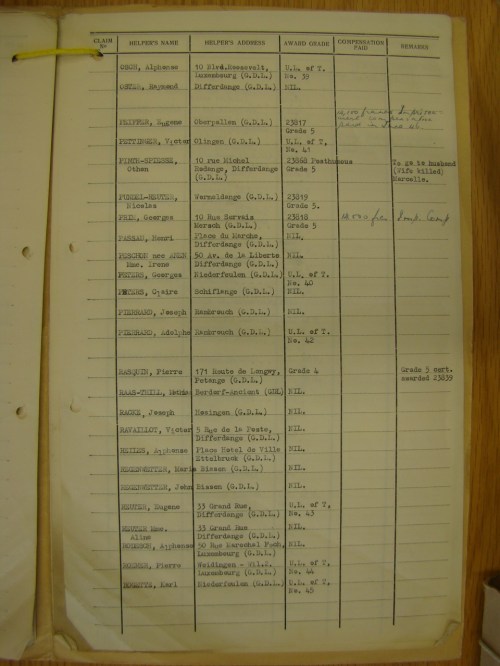 CLAIM No HELPER'S NAME HELPER'S ADDRESS AWARD GRADE COMPENSATION PAID REMARKS
OSCH, Alphonse 10 Blvd. Roosevelt, U.L. of T.
Luxembourg (G.D.L.) No. 39
Raymond Differdange (G.D.L.) NIL.
PEIFFER, Eugene Oberpallen (G.D.L.) 23817
Grade 5
PETTINGER, Victor Olingen (G.D.L.) U.L. of T.
No. 41
10 rue Michel 23868 Posthumous To go to husband
Othon Rodange, Differdange Grade 5 (Wife killed)
(G.D.L.) Marcelle.
Wormeldange (G.D.L.) 23819
Nicolas Grade 5.
PREM, Georges 10 Rue Servais 23818
Mersch (G.D.L.) Grade 5
Henri Place du Marche, NIL.
Differdange (G.D.L.)
PESCHON nee 50 Av. de la Liberte NIL.
Mme. Irene Differdange (G.D.L.)
PETERS, Georges Niederfeulen (G.D.L.) U.L. of T.
No. 40
PETERS, Claire Schifflange (G.D.L.) NIL.
PIERRARD, Joseph Rambrouch (G.D.L.) NIL.
PIERRARD, Adolphe Rambrouch (G.D.L.) U.L. of T.
No. 42
Pierre 171 Route de Longwy, Grade 4 Grade 5 cert.
Petange (G.D.L.) awarded 23839
Berdorf-ancient (GDL) NIL.
RACKE, Joseph Hosingen (G.D.L.) NIL.
RAVAILLOT, Victor 5 Rue de la Poste, NIL.
Differdange (G.D.L.)
REILES, Alphonse Place Hotel de Ville NIL.
Ettelbruck (G.D.L.)
REGENWETTER, Marie Bissen (G.D.L.) NIL.
REGENWETTER, John Bissen (G.D.L.) NIL.
REUTER, Eugene 33 Grand Rue, U.L. of T.
Differdange (G.D.L.) No. 43
REUTER Mme. 33 Grand Rue NIL.
Aline Differdange (G.D.L.)
Alphonse 50 Rue Marechal Foch, NIL.
Luxembourg (G.D.L.)
Pierre Weidingen - Wilz. U.L. of T.
Luxembourg (G.D.L.) No. 44
Karl Niederfeulen (G.D.L.) U.L. of T.
No. 45